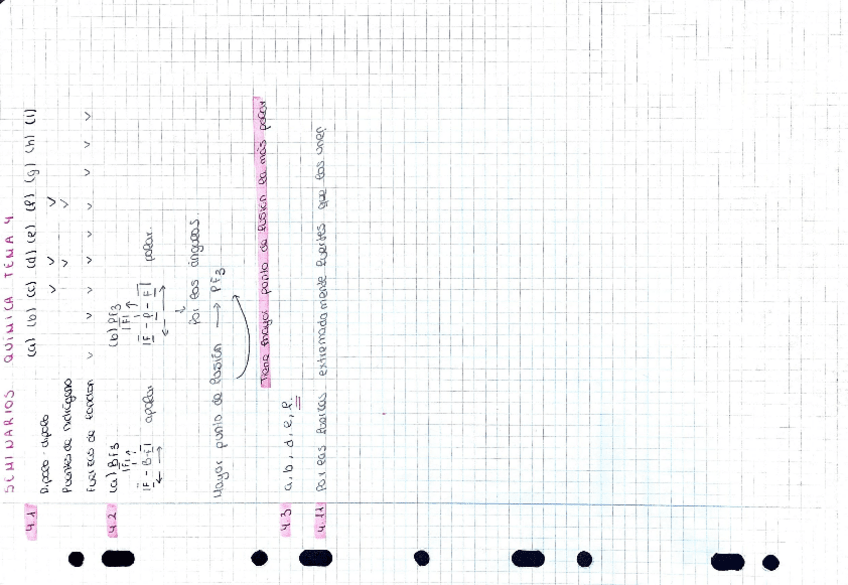 SEMINARIOS QUÍMICA TEMA 4
4.1 (a) (b) (c) (d) (e) (f) (g) (h) (i)
Dipolo-dipolo ✓ ✓ ✓
Puentes de hidrógeno ✓ ✓
Fuerzas de London ✓ ✓ ✓ ✓ ✓ ✓ ✓ ✓ ✓
4.2 (a) BF3 (b) PF3
|F| ↑ |F| ↑
|F - B - F| apolar |F - P - F| polar.
↓
Por los ángulos.
Mayor punto de fusión → PF3
Tiene mayor punto de fusión la más polar
4.3 a, b, d, e, f.
4.11 Por las fuerzas extremadamente fuertes que las unen